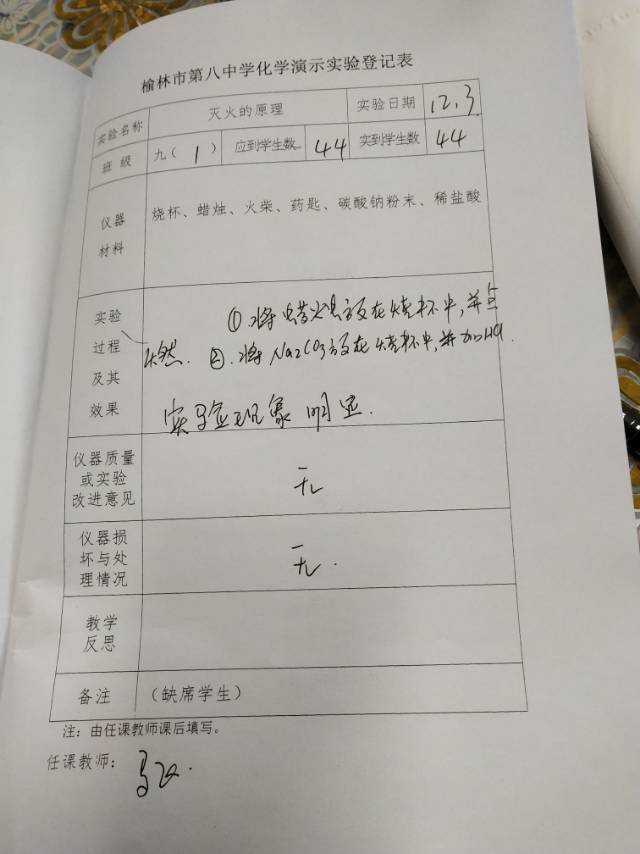 榆林市第八中学化学演示实验登记表
实验名称 灭火的原理 实验日期 12.3
班级 九（1） 应到学生数 44 实到学生数 44
仪器
材料
烧杯、蜡烛、火柴、药匙、碳酸钠粉末、稀盐酸
实验
过程
及其
效果
①将蜡烛放在烧杯中,并点
燃. ②.将Na2CO3放在烧杯中,并加HCl.
实验现象明显.
仪器质量
或实验
改进意见
无
仪器损
坏与处
理情况
无.
教学
反思
备注 （缺席学生）
注：由任课教师课后填写。
任课教师：